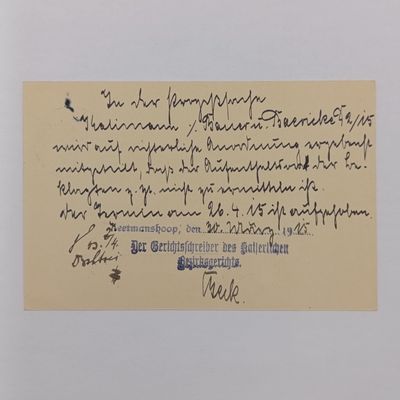 In der Prozeßsache
Thalimann ./. Bauer u. Baericke 52/15
wird auf richterliche Anordnung ergebenst
mitgeteilt, daß der Aufenthaltsort der Be-
klagten z. Zt. nicht zu ermitteln ist.
Der Termin am 26.4.15 ist aufgehoben.
Keetmanshoop, den 20. März 1915.
Der Gerichtsschreiber des Kaiserlichen
Bezirksgerichts.
Beck.